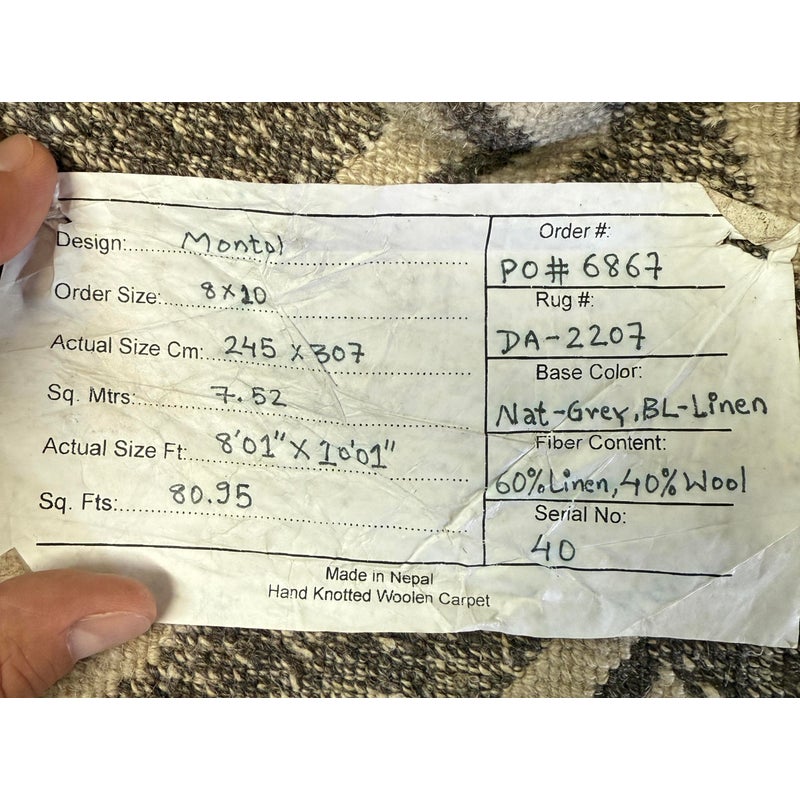 Design: Montol
Order Size: 8x10
Actual Size Cm: 245 x 307
Sq. Mtrs: 7.52
Actual Size Ft: 8'01" x 10'01"
Sq. Fts: 80.95
Order #:
PO# 6867
Rug #:
DA-2207
Base Color:
Nat-Grey, BL-Linen
Fiber Content:
60% Linen, 40% Wool
Serial No:
40
Made in Nepal
Hand Knotted Woolen Carpet